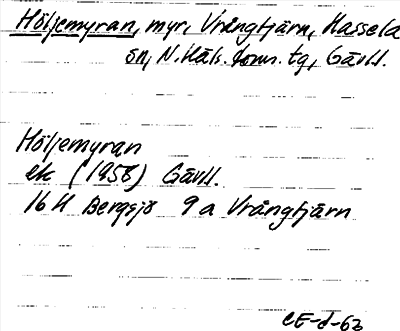 Höljemyran, myr, Vrångtjärn, Hassela
sn, N. Häls. doms. tg, Gävll.
Höljemyran
ek (1958) Gävll.
16 H Bergsjö 9 a Vrångtjärn
CE-d-62